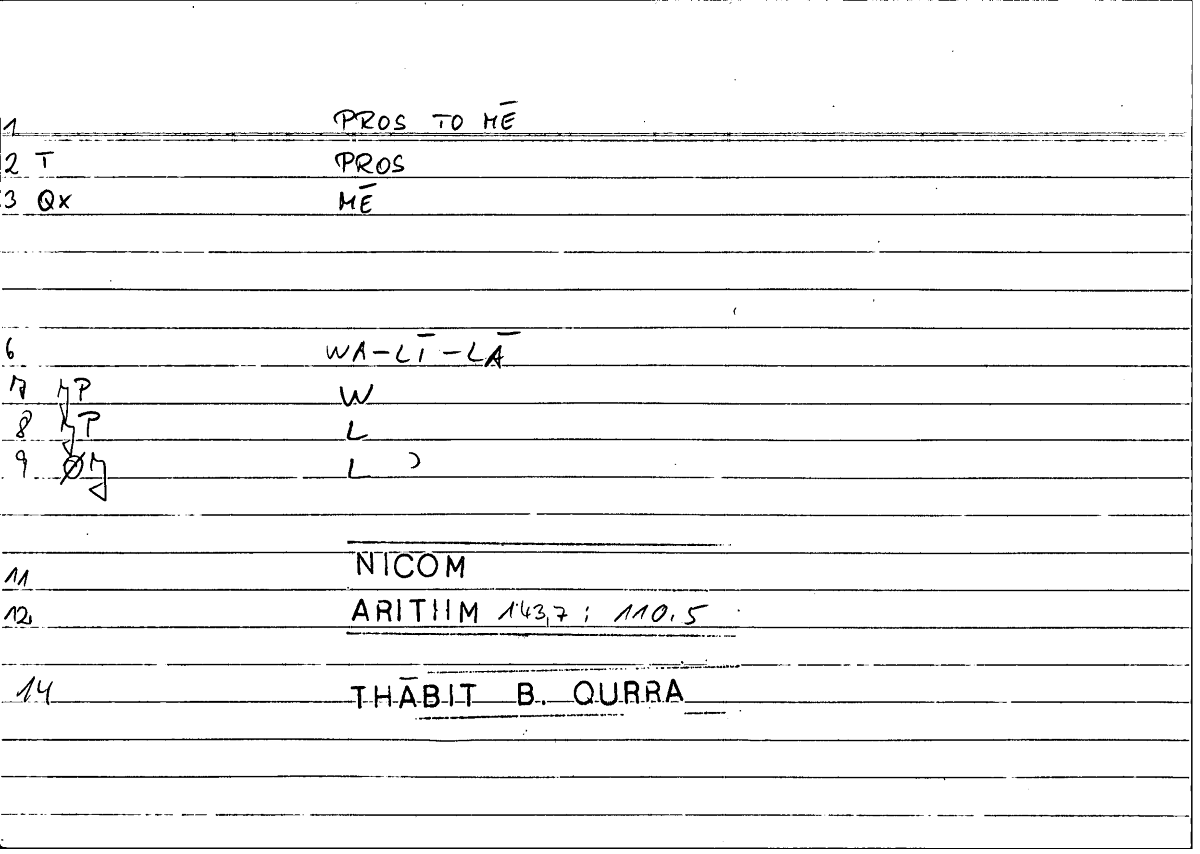 1 PROS TO MĒ
2 T PROS
3 Qx MĒ
6 WA-LĪ-LĀ
7 P W
8 P L
9 Ø L ͗
11 NICOM
12 ARITIIM 143,7; 110.5
14 THĀBIT B. QURRA